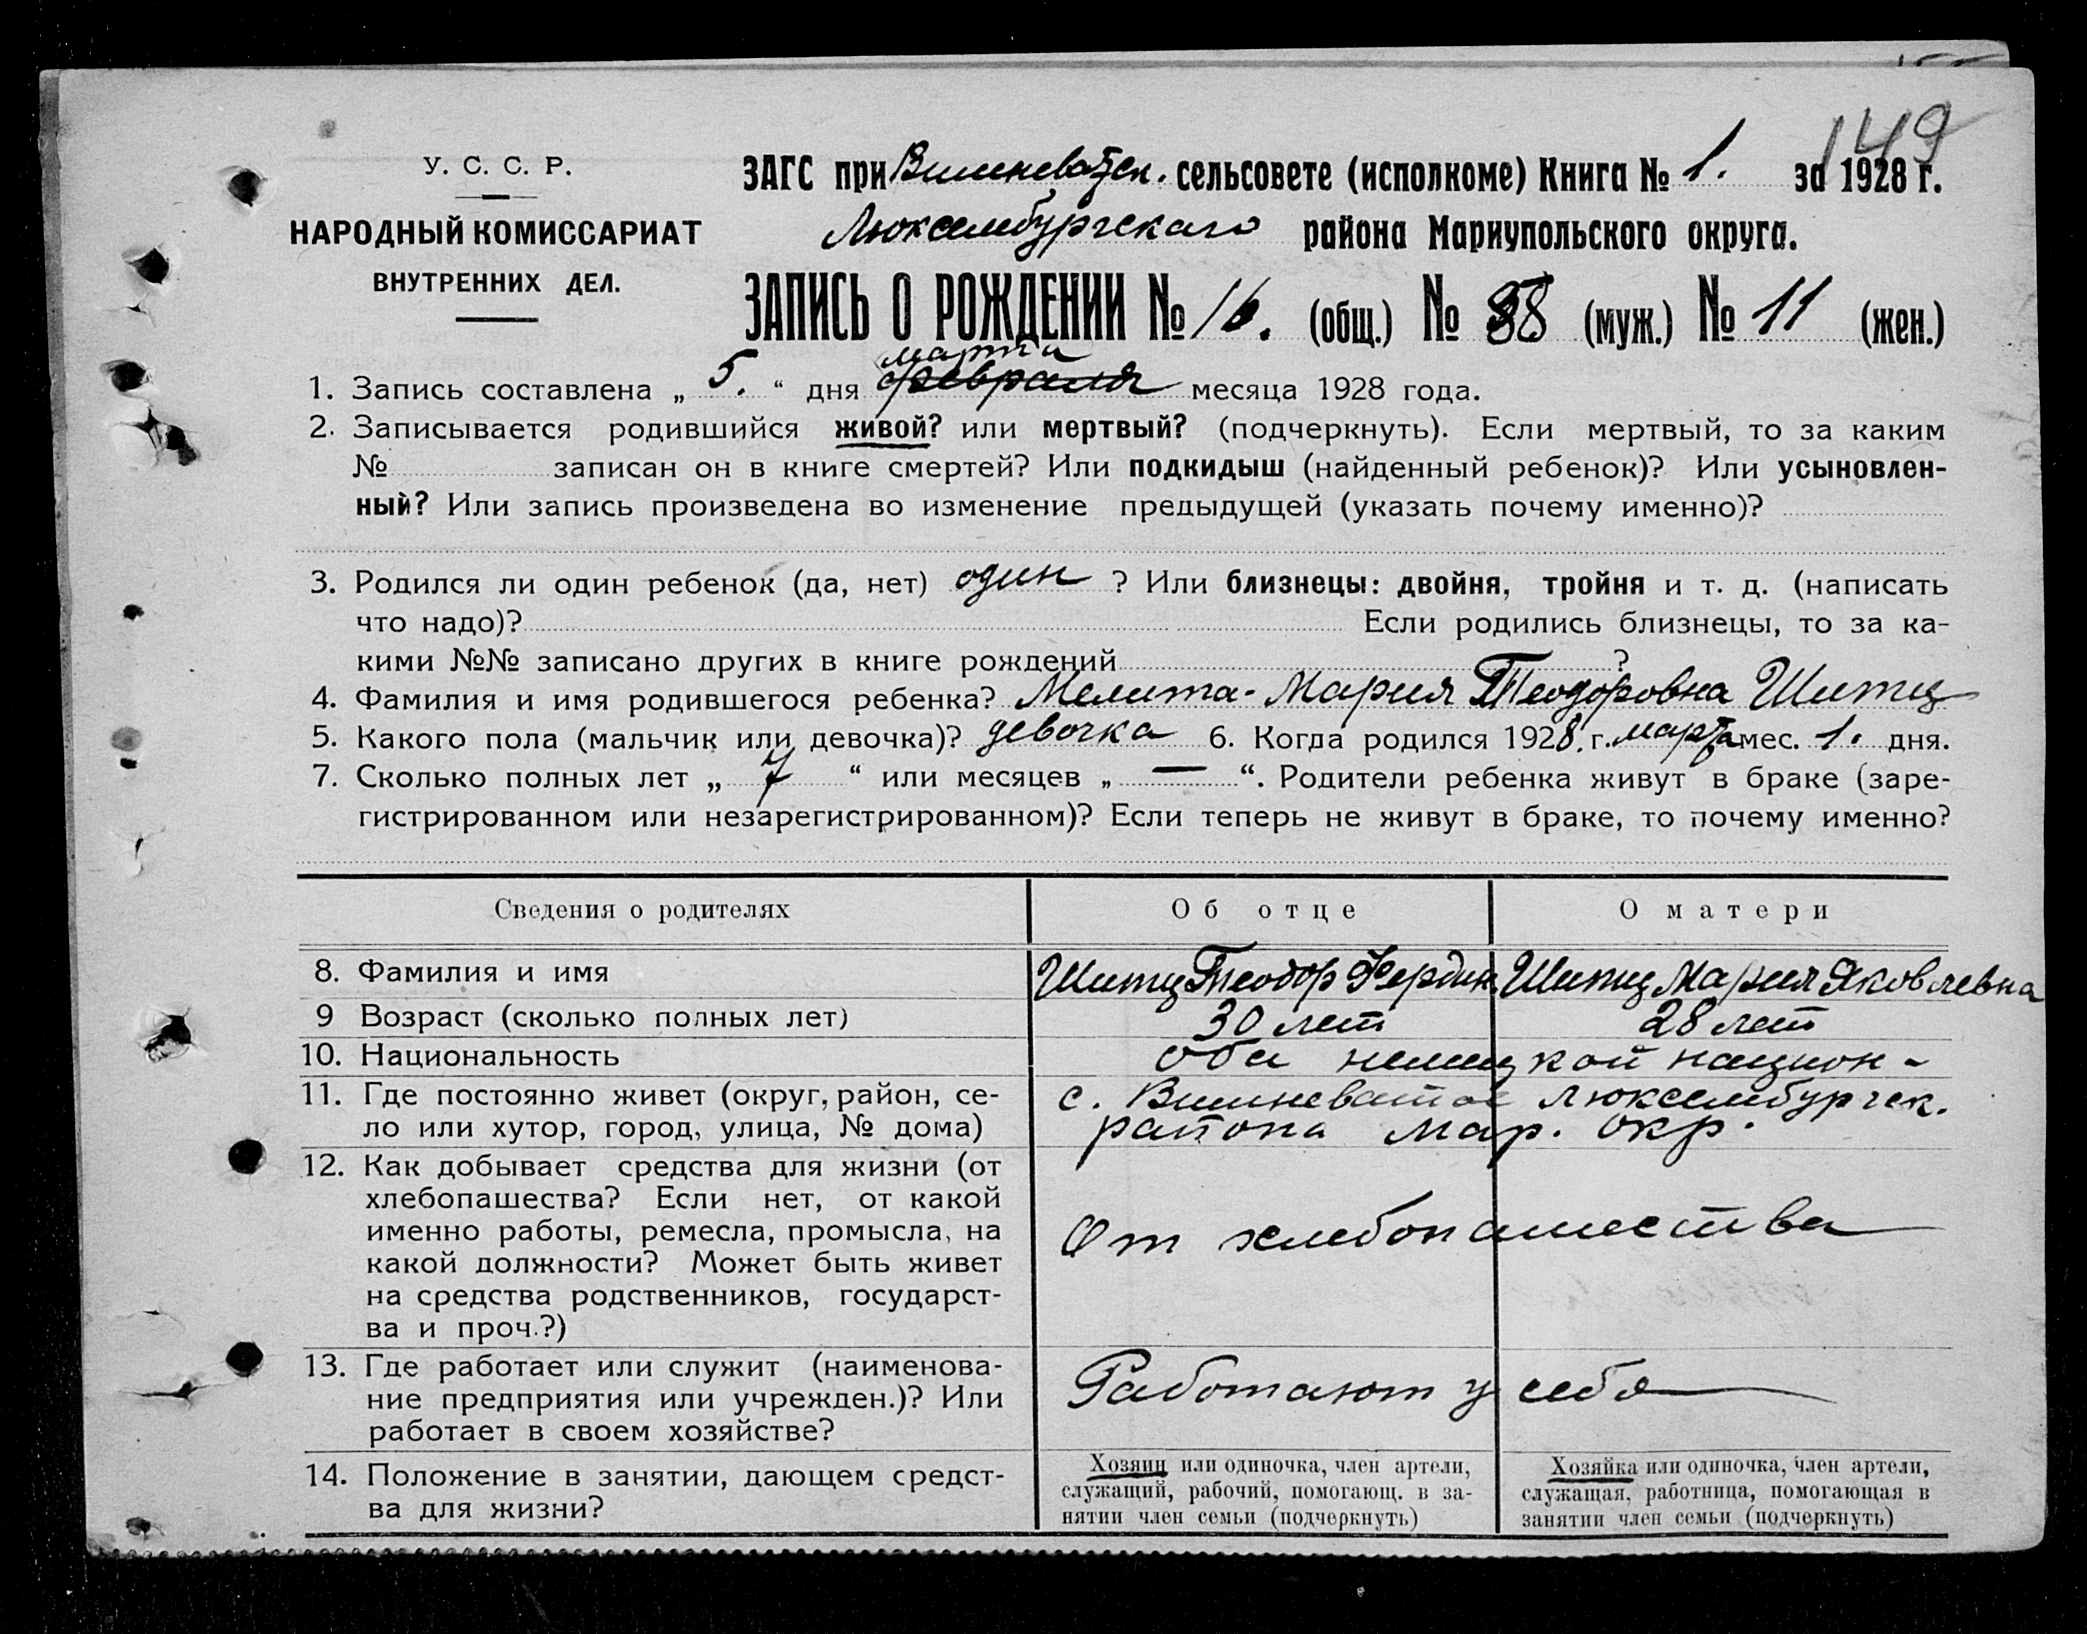 149
У. С. С. Р.
НАРОДНЫЙ КОМИССАРИАТ
ВНУТРЕННИХ ДЕЛ.
ЗАГС при Вишневатск. сельсовете (исполкоме) Книга № 1. за 1928 г.
Люксембургского района Мариупольского округа.
ЗАПИСЬ О РОЖДЕНИИ № 16. (общ.) № (муж.) № 11 (жен.)
марта
1. Запись составлена „ 5. “ дня февраля месяца 1928 года.
2. Записывается родившийся живой? или мертвый? (подчеркнуть). Если мертвый, то за каким
№ записан он в книге смертей? Или подкидыш (найденный ребенок)? Или усыновлен-
ный? Или запись произведена во изменение предыдущей (указать почему именно)?
3. Родился ли один ребенок (да, нет) один ? Или близнецы: двойня, тройня и т. д. (написать
что надо)? Если родились близнецы, то за ка-
кими №№ записано других в книге рождений ?
4. Фамилия и имя родившегося ребенка? Мелита-Мария Теодоровна Шитц
5. Какого пола (мальчик или девочка)? девочка 6. Когда родился 1928. г. марта мес. 1. дня.
7. Сколько полных лет „ 7 “ или месяцев „ — “. Родители ребенка живут в браке (заре-
гистрированном или незарегистрированном)? Если теперь не живут в браке, то почему именно?
Сведения о родителях Об отце О матери
8. Фамилия и имя Шитц Теодор Фердин. Шитц Мария Яковлевна
9 Возраст (сколько полных лет) 30 лет 28 лет
10. Национальность оба немецкой национ-
11. Где постоянно живет (округ, район, се- с. Вишневатое Люксембургск.
ло или хутор, город, улица, № дома) района Мар. окр.
12. Как добывает средства для жизни (от
хлебопашества? Если нет, от какой
именно работы, ремесла, промысла, на
какой должности? Может быть живет
на средства родственников, государст-
ва и проч.?)
От хлебопашества
13. Где работает или служит (наименова-
ние предприятия или учрежден.)? Или
работает в своем хозяйстве?
Работают у себя
14. Положение в занятии, дающем средст-
ва для жизни?
Хозяин или одиночка, член артели,
служащий, рабочий, помогающ. в за-
нятии член семьи (подчеркнуть)
Хозяйка или одиночка, член артели,
служащая, работница, помогающая в
занятии член семьи (подчеркнуть)